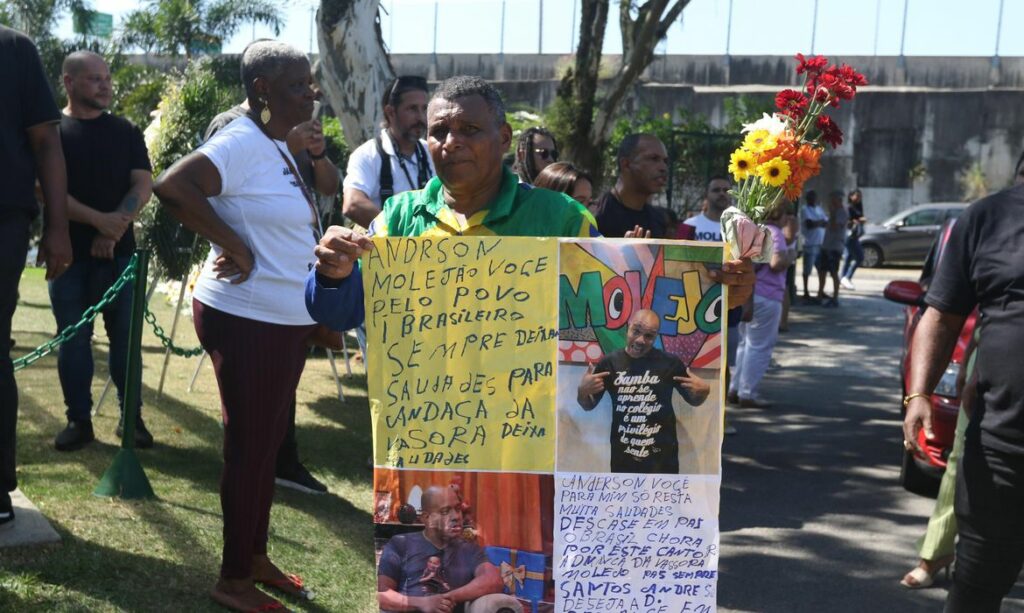 ANDRSON
MOLEJÃO VOCE
PELO POVO
I BRASILEIRO
SEMPRE DEIXA
SAUDADES PARA
DA
VASORA DEIXA
SAUDADES
MOLEJO
Samba
não se
aprende
no colégio
é um
privilégio
de quem
sente
ANDERSON VOCÊ
PARA MIM SÓ RESTA
MUITA SAUDADES
DESCASE EM PAS
O BRASIL CHORA
POR ESTE CANTOR
DA VASSORA
MOLEJO PAS SEMPRE
SANTOS ANDRE S
DESEJA A D.
MOL